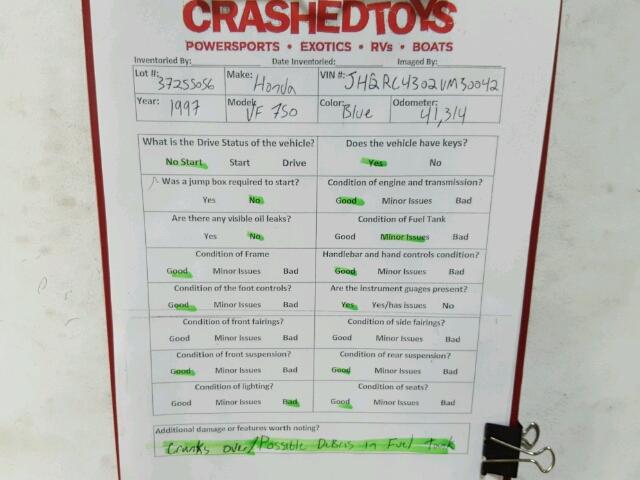 CRASHEDTOYS
POWERSPORTS • EXOTICS • RVs • BOATS
Inventoried By: Date Inventoried: Imaged By:
Lot #: 37255056 Make: Honda VIN #: JH2RC4302VM30042
Year: 1997 Model: VF 750 Color: Blue Odometer: 41,314
What is the Drive Status of the vehicle? Does the vehicle have keys?
No Start Start Drive Yes No
Was a jump box required to start? Condition of engine and transmission?
Yes No Good Minor Issues Bad
Are there any visible oil leaks? Condition of Fuel Tank
Yes No Good Minor Issues Bad
Condition of Frame Handlebar and hand controls condition?
Good Minor Issues Bad Good Minor Issues Bad
Condition of the foot controls? Are the instrument guages present?
Good Minor Issues Bad Yes Yes/has issues No
Condition of front fairings? Condition of side fairings?
Good Minor Issues Bad Good Minor Issues Bad
Condition of front suspension? Condition of rear suspension?
Good Minor Issues Bad Good Minor Issues Bad
Condition of lighting? Condition of seats?
Good Minor Issues Bad Good Minor Issues Bad
Additional damage or features worth noting?
Cranks over/Possible Debris in Fuel Tank